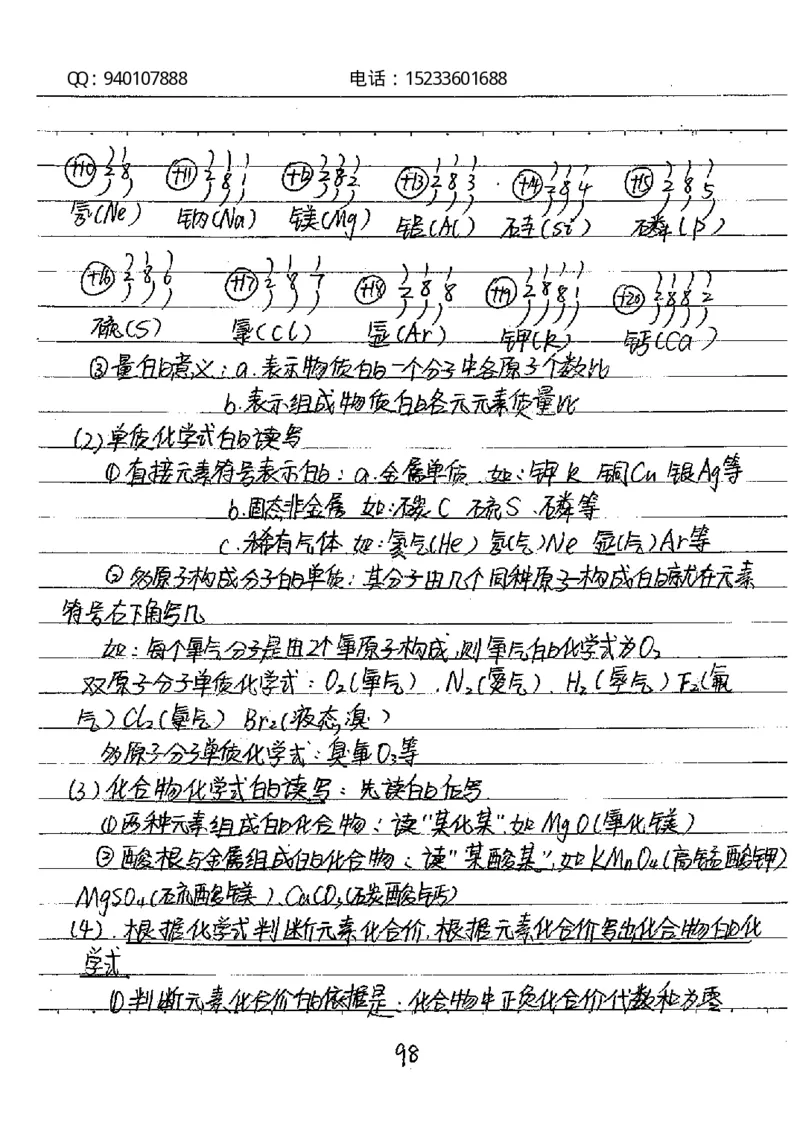 QQ：940107888 电话：15233601688
+10 2 8 +11 2 8 1 +12 2 8 2 +13 2 8 3 +14 2 8 4 +15 2 8 5
氖(Ne) 钠(Na) 镁(Mg) 铝(Al) 硅(Si) 磷(P)
+16 2 8 6 +17 2 8 7 +18 2 8 8 +19 2 8 8 1 +20 2 8 8 2
硫(S) 氯(Cl) 氩(Ar) 钾(K) 钙(Ca)
③量的意义：a.表示物质的一个分子中各原子个数比
b.表示组成物质的各元元素质量比
(2)单质化学式的读写
①直接元素符号表示的：a.金属单质 如：钾K 铜Cu 银Ag等
b.固态非金属 如：碳C 硫S、磷等
c.稀有气体 如：氦气(He) 氖(气)Ne 氩(气)Ar等
②多原子构成分子的单质：其分子由几个同种原子构成的就在元素
符号右下角写几
如：每个氧气分子是由2个氧原子构成,则氧气的化学式为O₂
双原子分子单质化学式：O₂(氧气)、N₂(氮气)、H₂(氢气) F₂(氟
气) Cl₂(氯气) Br₂(液态溴)
多原子分子单质化学式：臭氧O₃等
(3)化合物化学式的读写：先读的后写
①两种元素组成的化合物：读"某化某",如MgO(氧化镁)
②酸根与金属组成的化合物：读"某酸某",如KMnO₄(高锰酸钾)
MgSO₄(硫酸镁)、CaCO₃(碳酸钙)
(4).根据化学式判断元素化合价,根据元素化合价写出化合物的化
学式
①判断元素化合价的依据是：化合物中正负化合价代数和为零.
98